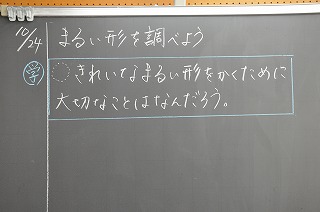 10/24
まるい形を調べよう
学
きれいなまるい形をかくために
大切なことはなんだろう。